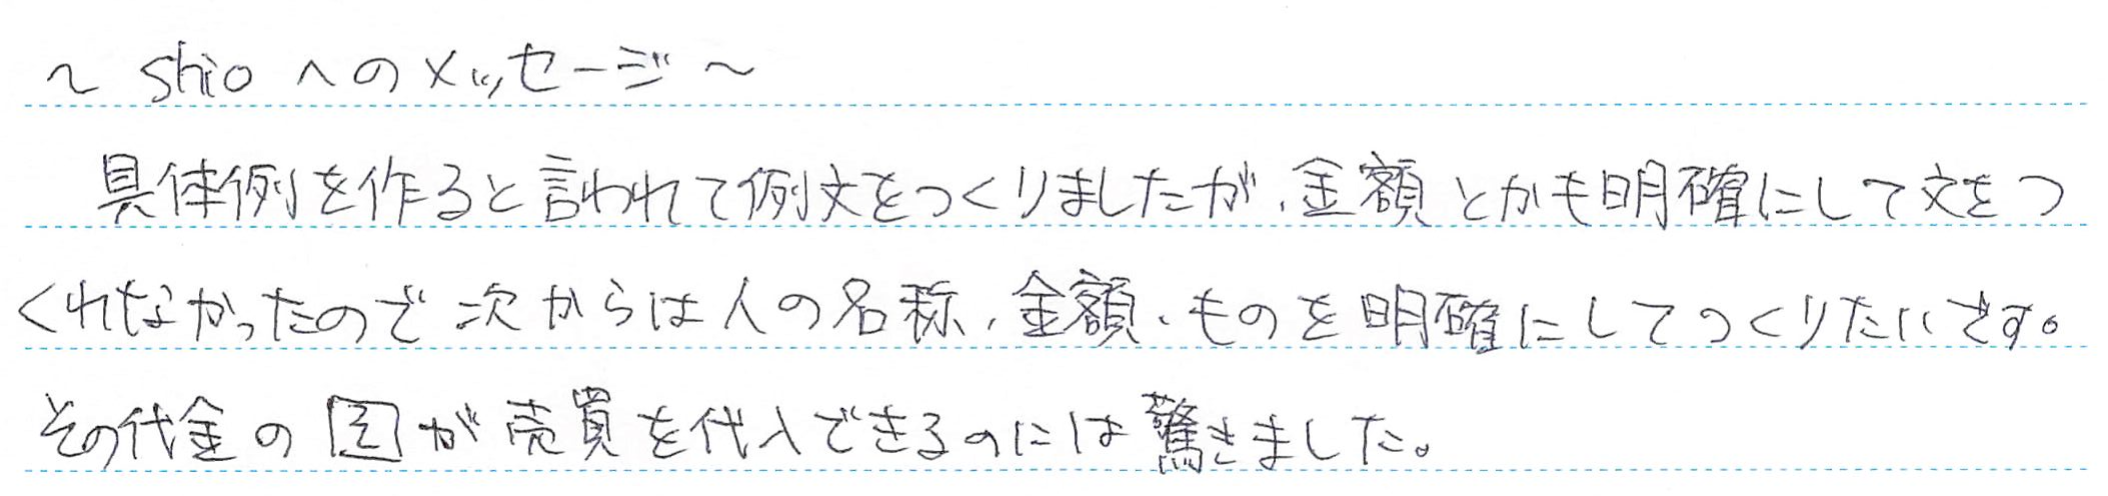 ～ shio へのメッセージ ～
具体例を作ると言われて例文をつくりましたが、金額とかも明確にして文をつ
くれなかったので次からは人の名称、金額、ものを明確にしてつくりたいです。
その代金の そ が売買を代入できるのには驚きました。